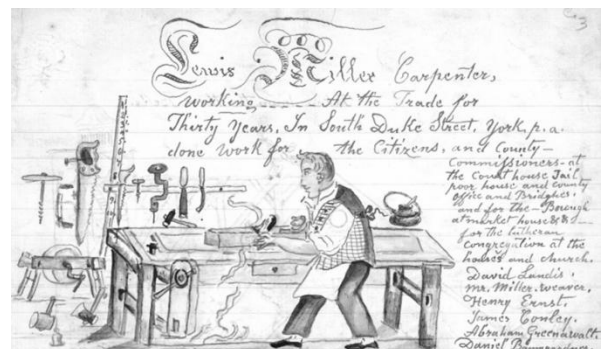 3
Lewis Miller Carpenter,
working At the Trade for
Thirty Years, In South Duke Street, York, p.a.
done work for the Citizens, and County—
Commissioners at
the Court house Jail
poor house and county
office and Bridghes.
and for the Borough
at market house &&
for the Lutheran
Congregation at the
houses and church.
David Landis.
Mr. Miller. weaver,
Henry Ernst,
James Conley.
Abraham Greenawalt.
Daniel